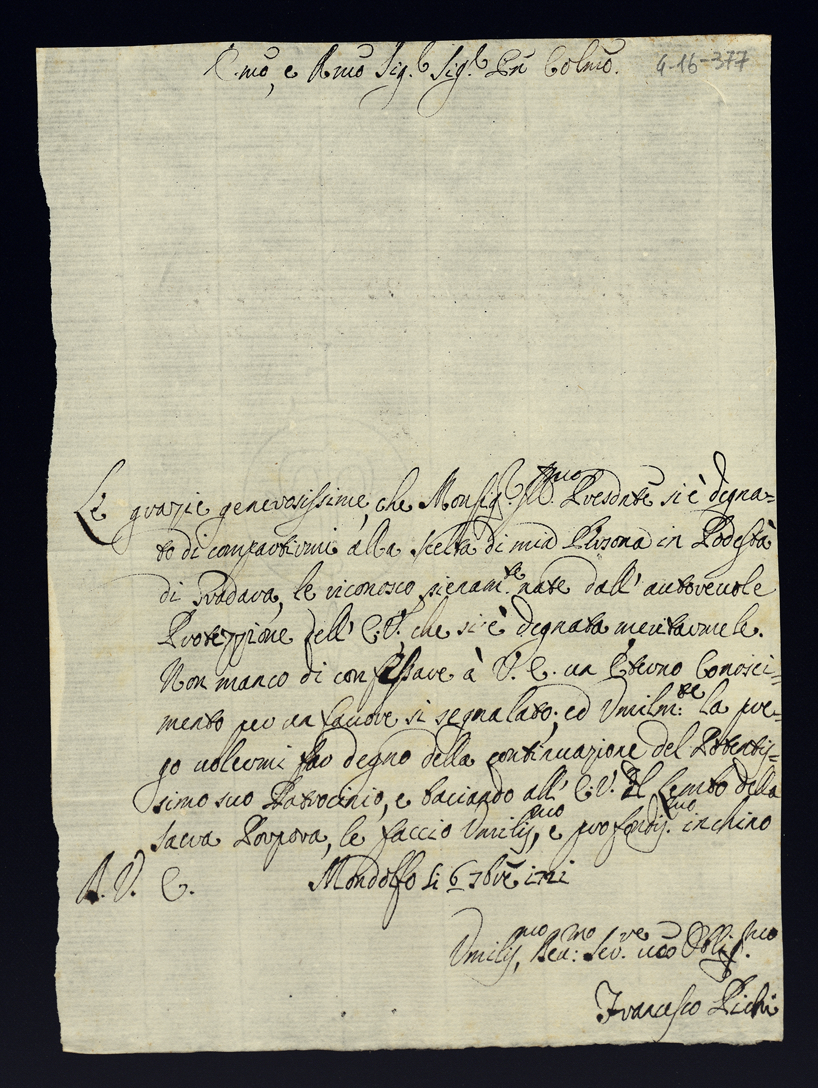 E.mo, e R.mo Sig.r Sig.r Pñ Colmo. 4-16-377
Le grazie generosissime, che Monsig.r Ill.mo Presdñte si è degna=
to di compartirmi alla scelta di mia Persona in Podestà
di Pradara, le riconosco pieram.te nate dall' autorevole
Protezzione dell' E.V. che si è degnata meritarmele.
Non manco di confessare à V. E. un Eterno Conosci=
mento per un favore si segnalato; ed Umilm:te la pre=
go volermi far degno della continuazione del Potentis=
simo suo Patrocinio, e baciando all' E.V. il Lembo della
sacra Porpora, le faccio Umiliss.mo, e profondiss.mo inchino
A. V. E. Mondolfo li 6 7bre 1721
Umiliss.mo, Deu:mo Ser.re vẽo Obblig.mo
Francesco Pichi